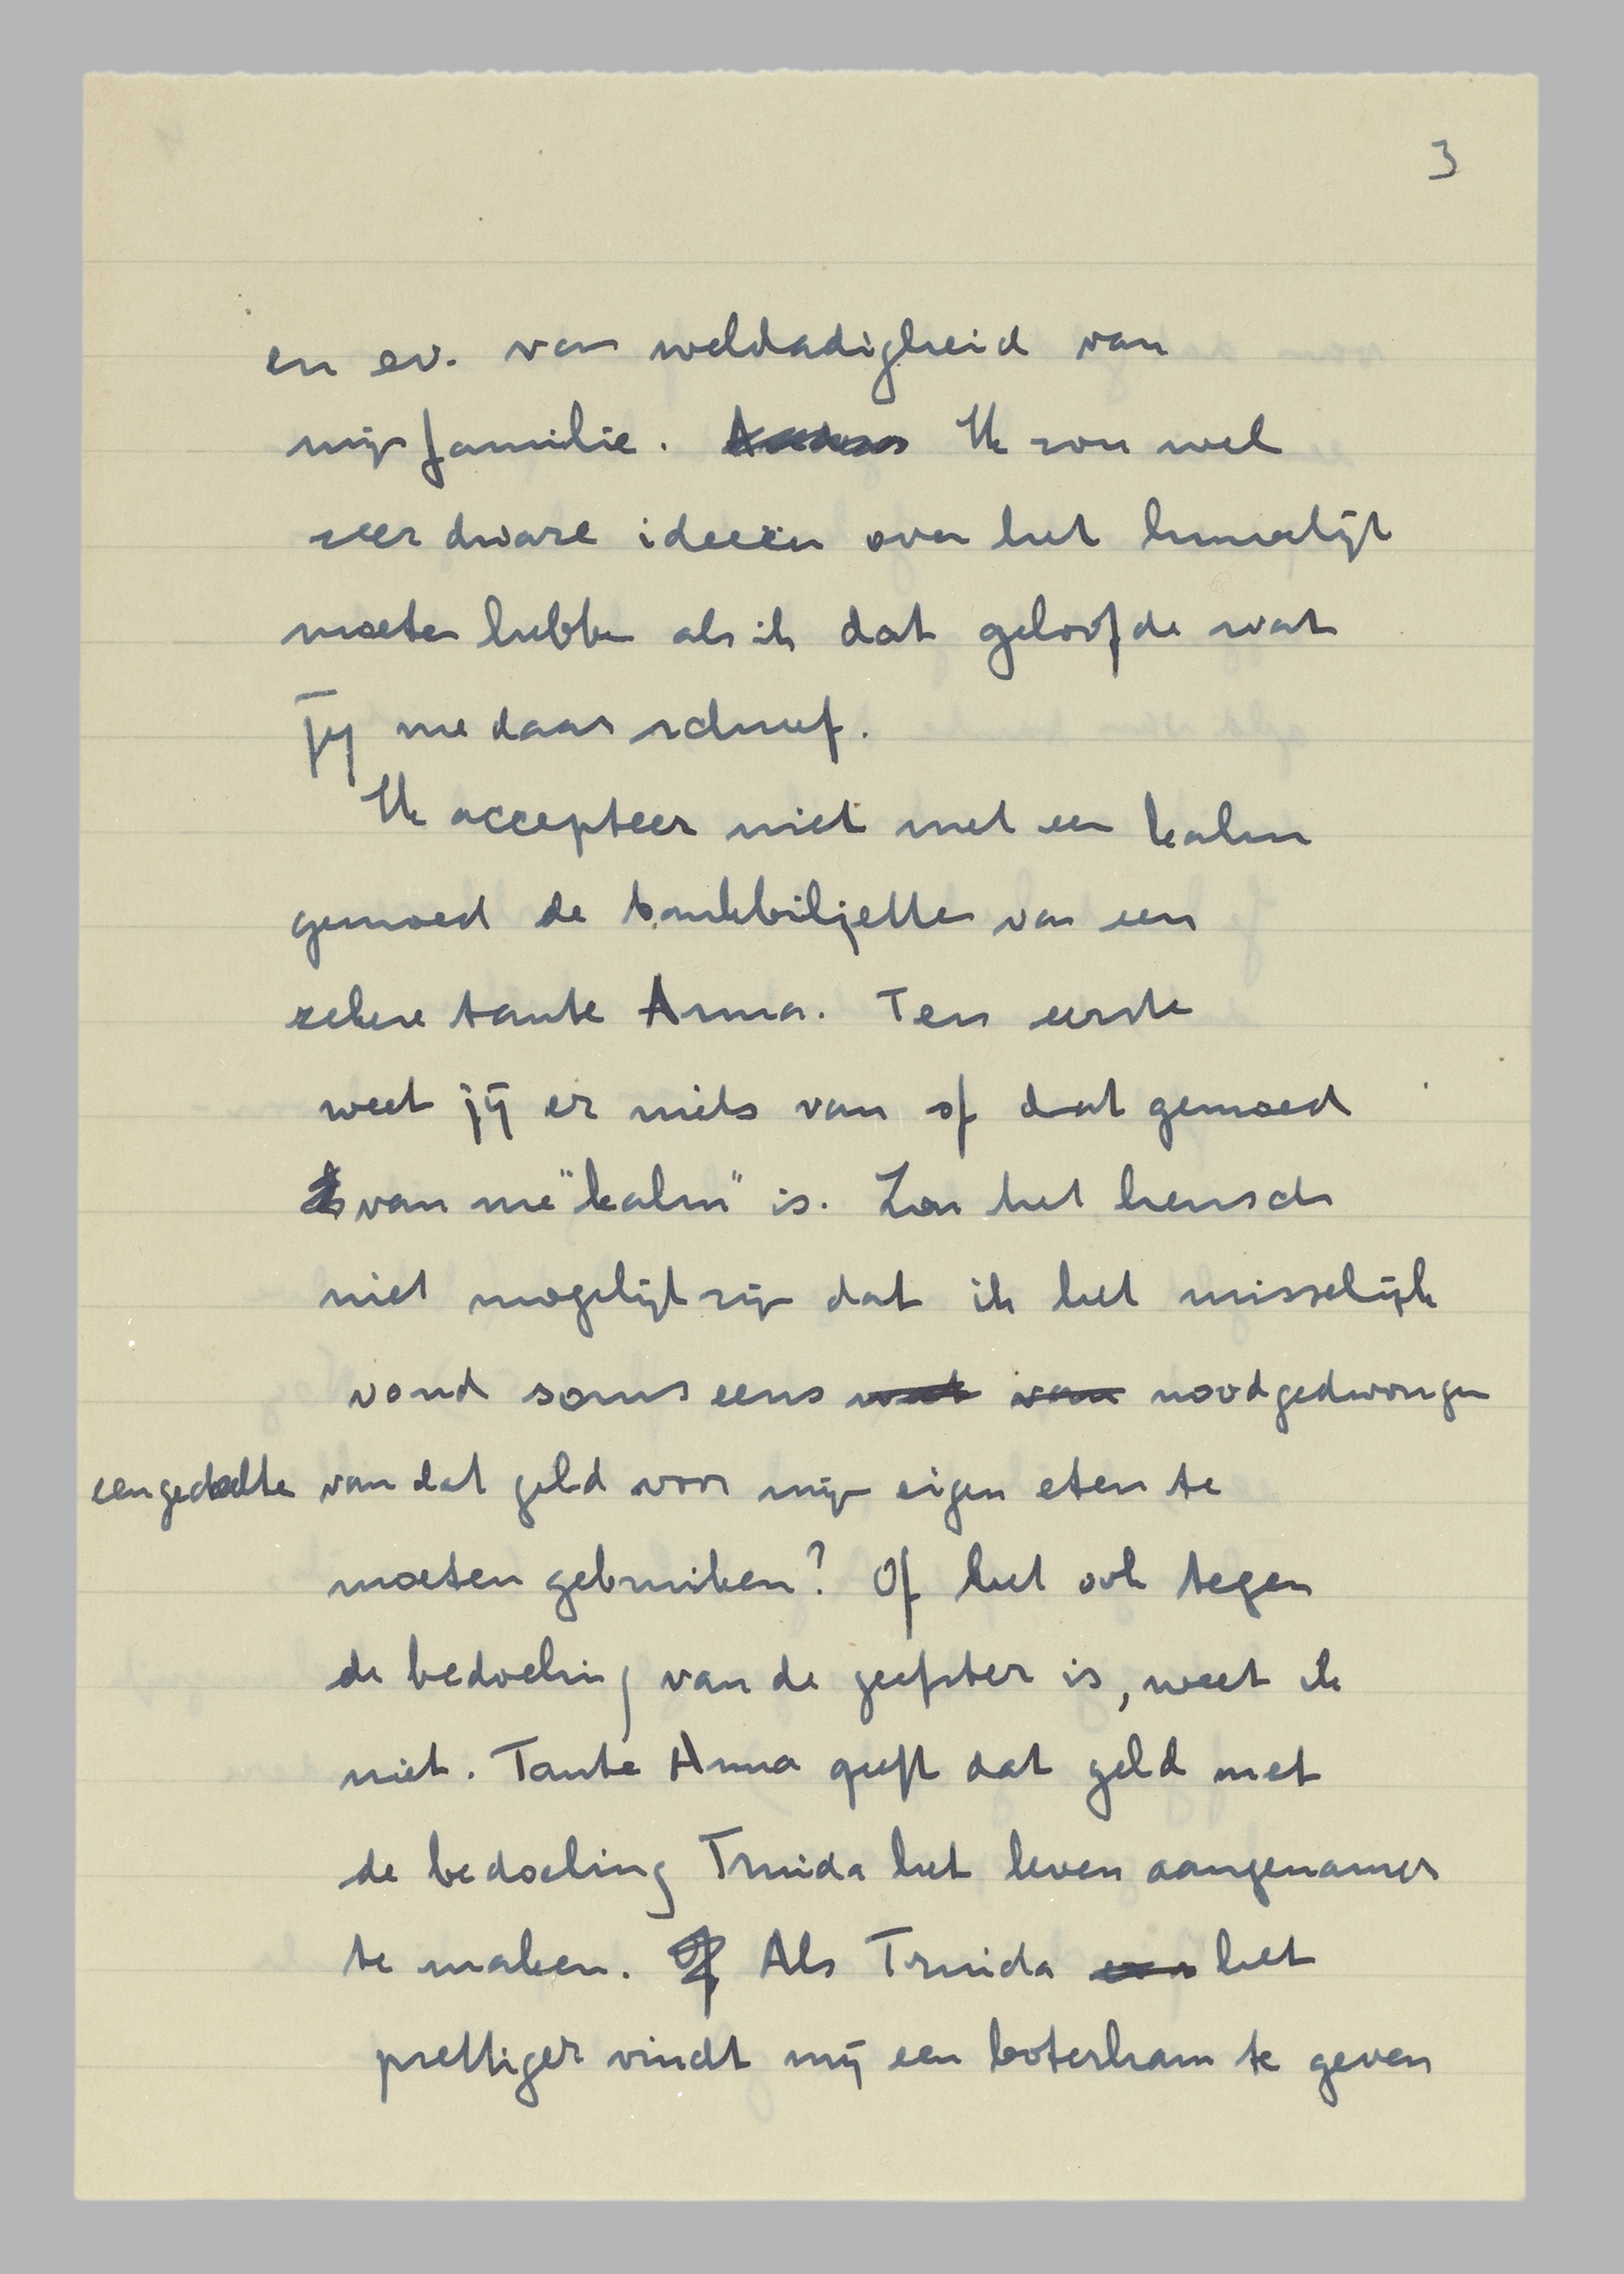 3
en ev. van weldadigheid van
mijn familie. Ik zou wel
zeer dwaze ideeën over het huwelijk
moeten hebben als ik dat geloofde wat
jij me daar schreef.
Ik accepteer niet met een kalm
gemoed de bankbiljetten van een
zekere tante Anna. Ten eerste
weet jij er niets van of dat gemoed
van me "kalm" is. Zou het heusch
niet mogelijk zijn dat ik het misselijk
vond soms eens wat van noodgedwongen
een gedeelte van dat geld voor mijn eigen eten te
moeten gebruiken? Of het ook tegen
de bedoeling van de geefster is, weet ik
niet. Tante Anna geeft dat geld met
de bedoeling Truida het leven aangenamer
te maken. Of Als Truida het
prettiger vindt mij een boterham te geven